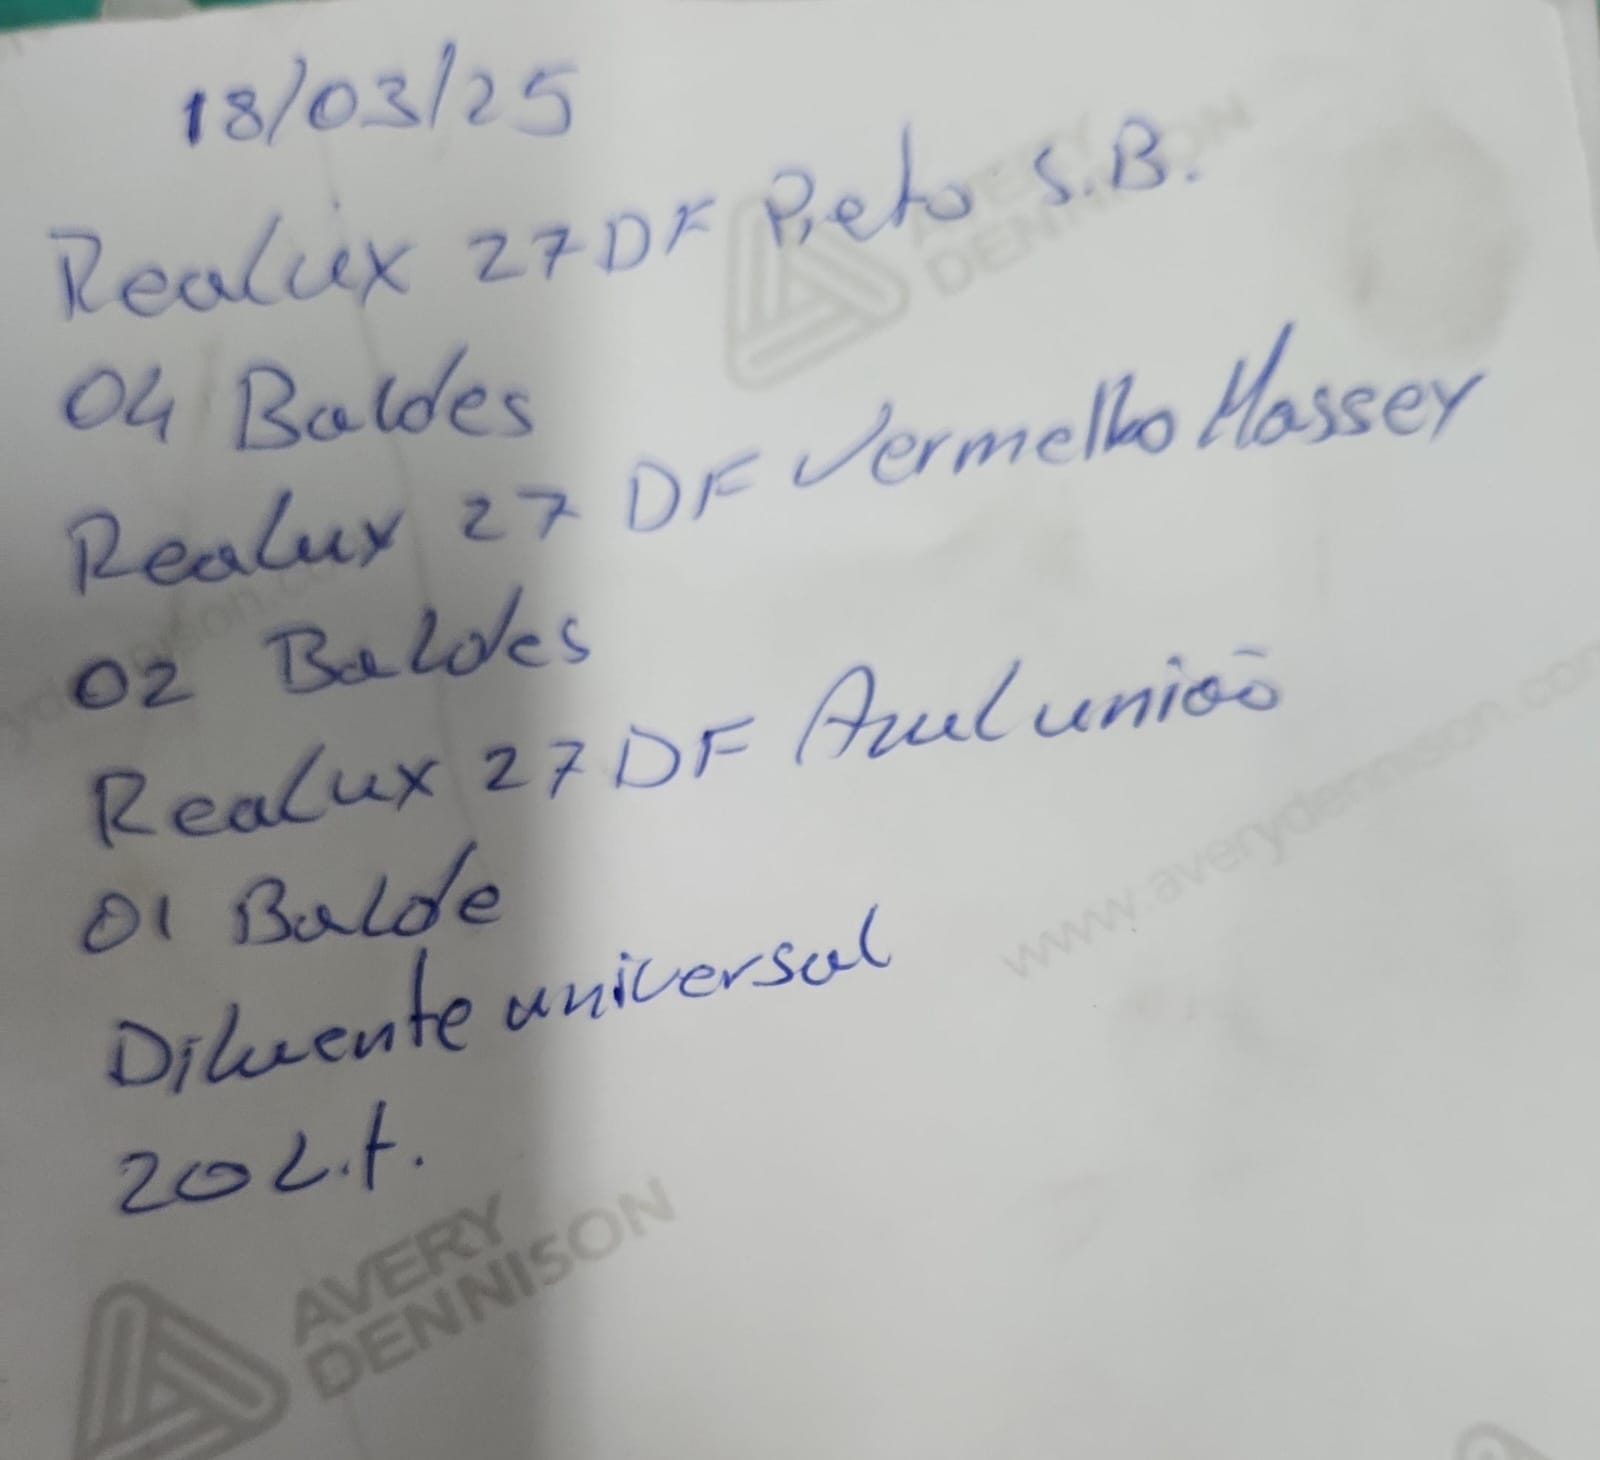 18/03/25
Realux 27 DF Preto S.B.
04 Baldes
Realux 27 DF Vermelho Massey
02 Baldes
Realux 27 DF Azul união
01 Balde
Diluente universal
20 L.t.
AVERY
DENNISON
www.averydennison.com
AVERY
DENNISON